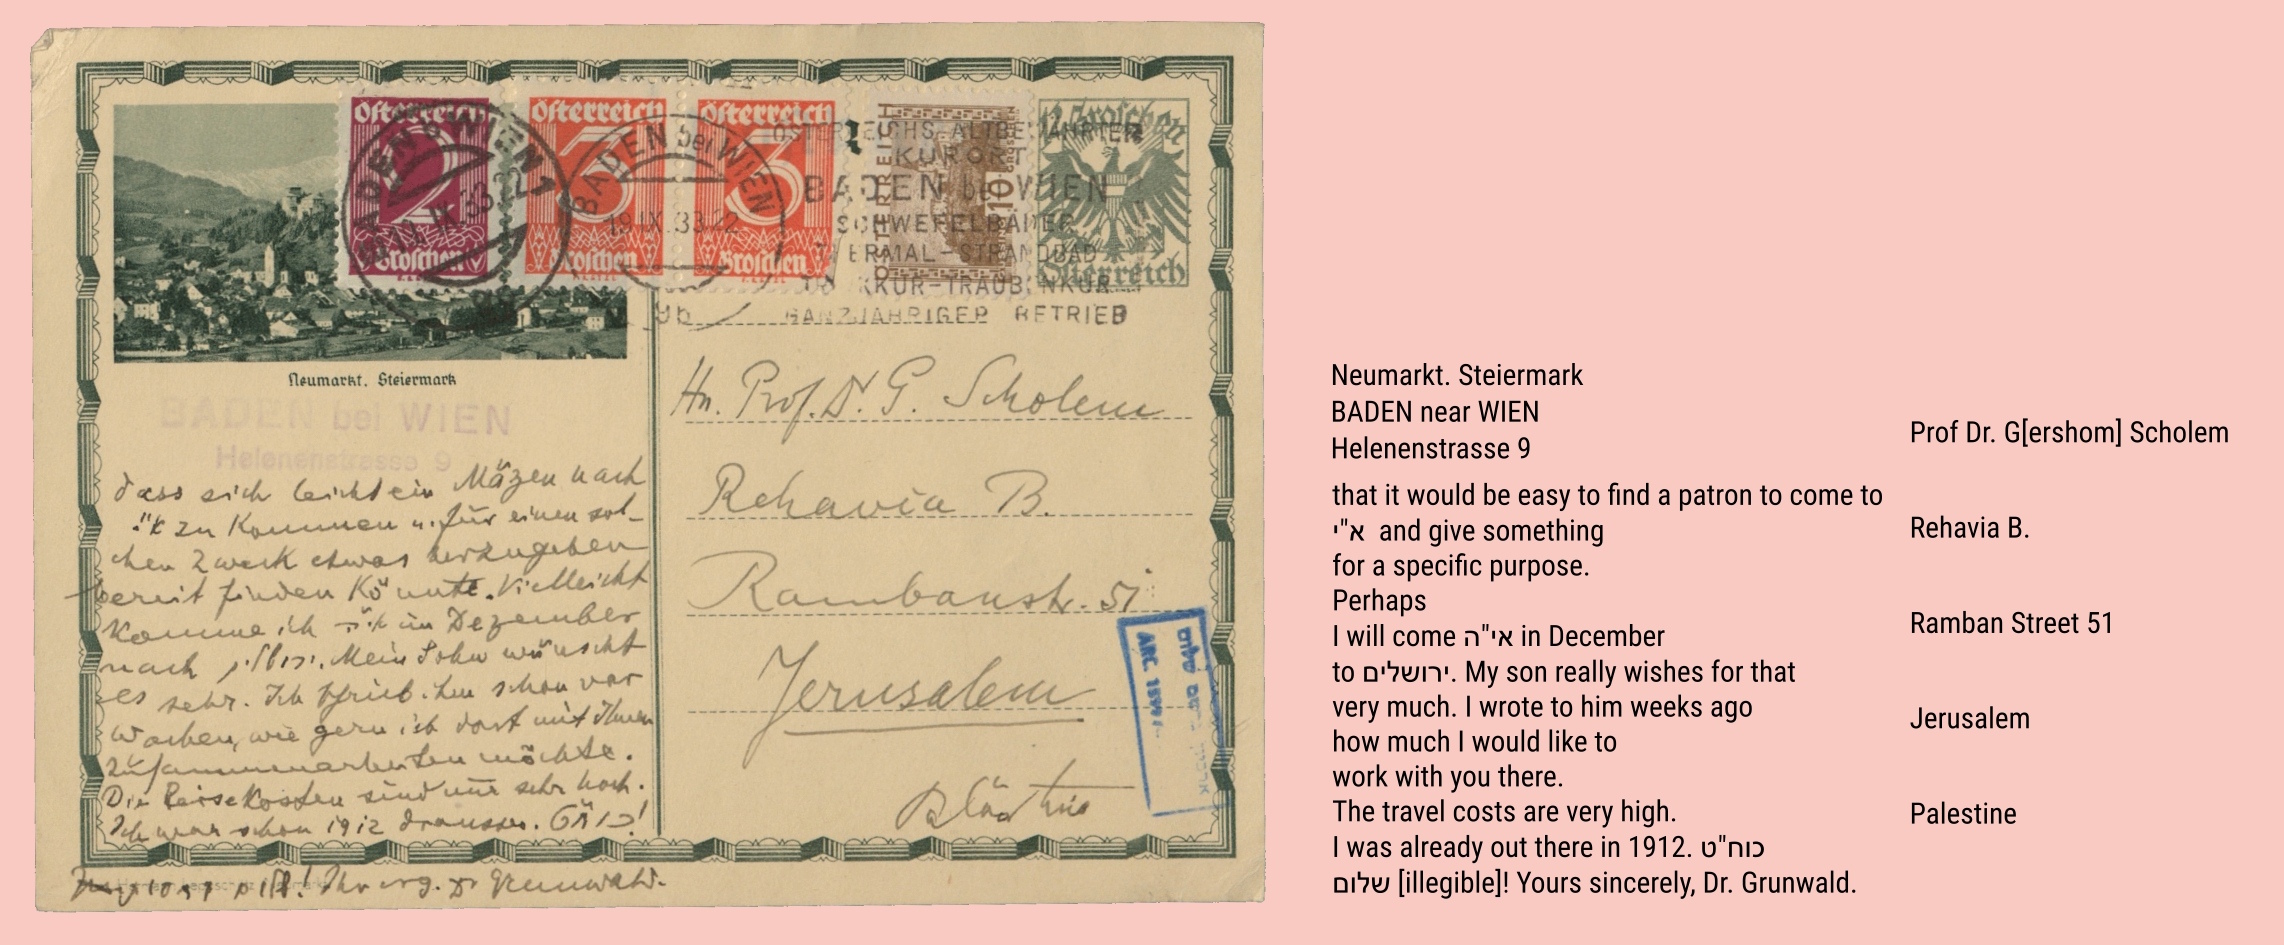 Österreich
2
Groschen
Österreich
3
Groschen
Österreich
3
Groschen
ÖSTERREICH
10
GROSCHEN
12 Groschen
Österreich
BADEN b. WIEN 1
19.IX.33.22
BADEN bei WIEN
19.IX.33.22
9b
ÖSTERREICHS ALTBEWÄHRTER
KURORT
BADEN bei WIEN
SCHWEFELBÄDER
THERMAL-STRANDBAD
TRINKKUR-TRAUBENKUR
GANZJÄHRIGER BETRIEB
Neumarkt. Steiermark
BADEN bei WIEN
Helenenstrasse 9
dass sich leicht ein Mäzen nach
א"י zu kommen u. für einen sol-
chen Zweck etwas herzugeben
bereit finden könnte. Vielleicht
komme ich אי"ה im Dezember
nach ירושלים. Mein Sohn wünscht
es sehr. Ich schrieb ihm schon vor
Wochen, wie gern ich dort mit Ihnen
zusammenarbeiten möchte.
Die Reisekosten sind nur sehr hoch.
Ich war schon 1912 draussen.
Ihr erg. Dr Grunwald.
Hn. Prof. Dr. G. Scholem
Rehavia B.
Rambanstr. 51
Jerusalem
Palästina
ARC. 1599/
Neumarkt. Steiermark
BADEN near WIEN
Helenenstrasse 9
that it would be easy to find a patron to come to
א"י and give something
for a specific purpose.
Perhaps
I will come אי"ה in December
to ירושלים. My son really wishes for that
very much. I wrote to him weeks ago
how much I would like to
work with you there.
The travel costs are very high.
I was already out there in 1912. כוח"ט
שלום [illegible]! Yours sincerely, Dr. Grunwald.
Prof Dr. G[ershom] Scholem
Rehavia B.
Ramban Street 51
Jerusalem
Palestine